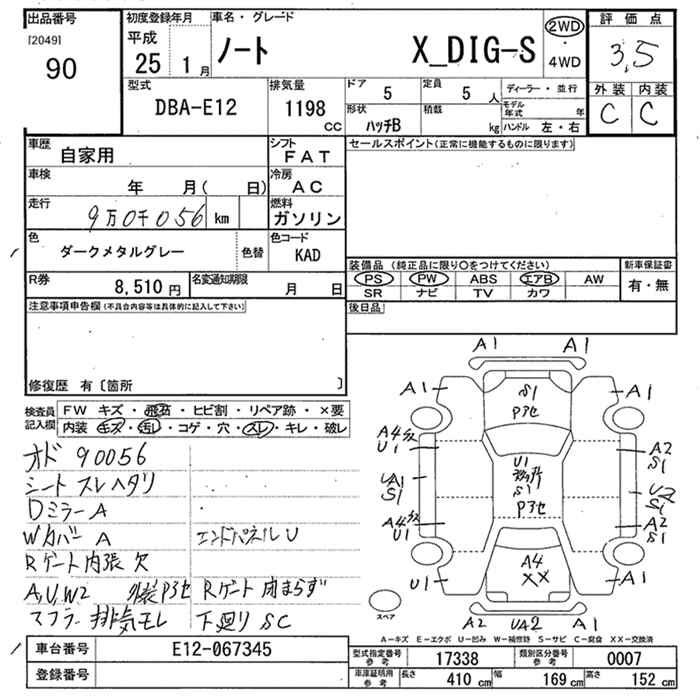 出品番号 初度登録年月 車名・グレード 評価点
[2049] 平成 ノート X_DIG-S 2WD・4WD 3,5
90 25 1月
型式 排気量 ドア 5 定員 5人 ディーラー・並行 外装 内装
DBA-E12 1198 cc 形状 ハッチB 積載 kg モデル年式 年 C C
ハンドル 左・右
車歴 自家用 シフト FAT セールスポイント(正常に機能するものに限ります)
車検 年 月( 日) 冷房 AC
走行 9万0千056 km 燃料 ガソリン
色 ダークメタルグレー 色替 色コード KAD
装備品(純正品に限り○をつけてください) 新車保証書
R券 8,510円 名変通知期限 月 日 PS PW ABS エアB AW 有・無
SR ナビ TV カワ
注意事項申告欄(不具合内容等は具体的に記入して下さい) 後日品
修復歴 有〔箇所 〕
検査員記入欄 FW キズ・飛石・ヒビ割・リペア跡・×要
内装 キズ・汚レ・コゲ・穴・スレ・キレ・破レ
オド 90056
シート スレ ヘタリ
Dミラー A
Wカバー A エンドパネル U
Rゲート内張 欠
A,U,W2 外装P3セ Rゲート 閉まらず
マフラー 排気モレ 下廻り SC
A1 A1
A1 S1 A1
P3セ
A4 U1 A2 S1
U1
UA1 S1 S1 U2 S1
P3セ
A4 U1 A2 S1
A4
U1 XX A1
スペア A2 UA2 S1
A-キズ E-エクボ U-凹み W-補修跡 S-サビ C-腐食 XX-交換済
車台番号 E12-067345 型式指定番号 参考 17338 類別区分番号 参考 0007
登録番号 車庫証明用 参考 長さ 410 cm 幅 169 cm 高さ 152 cm